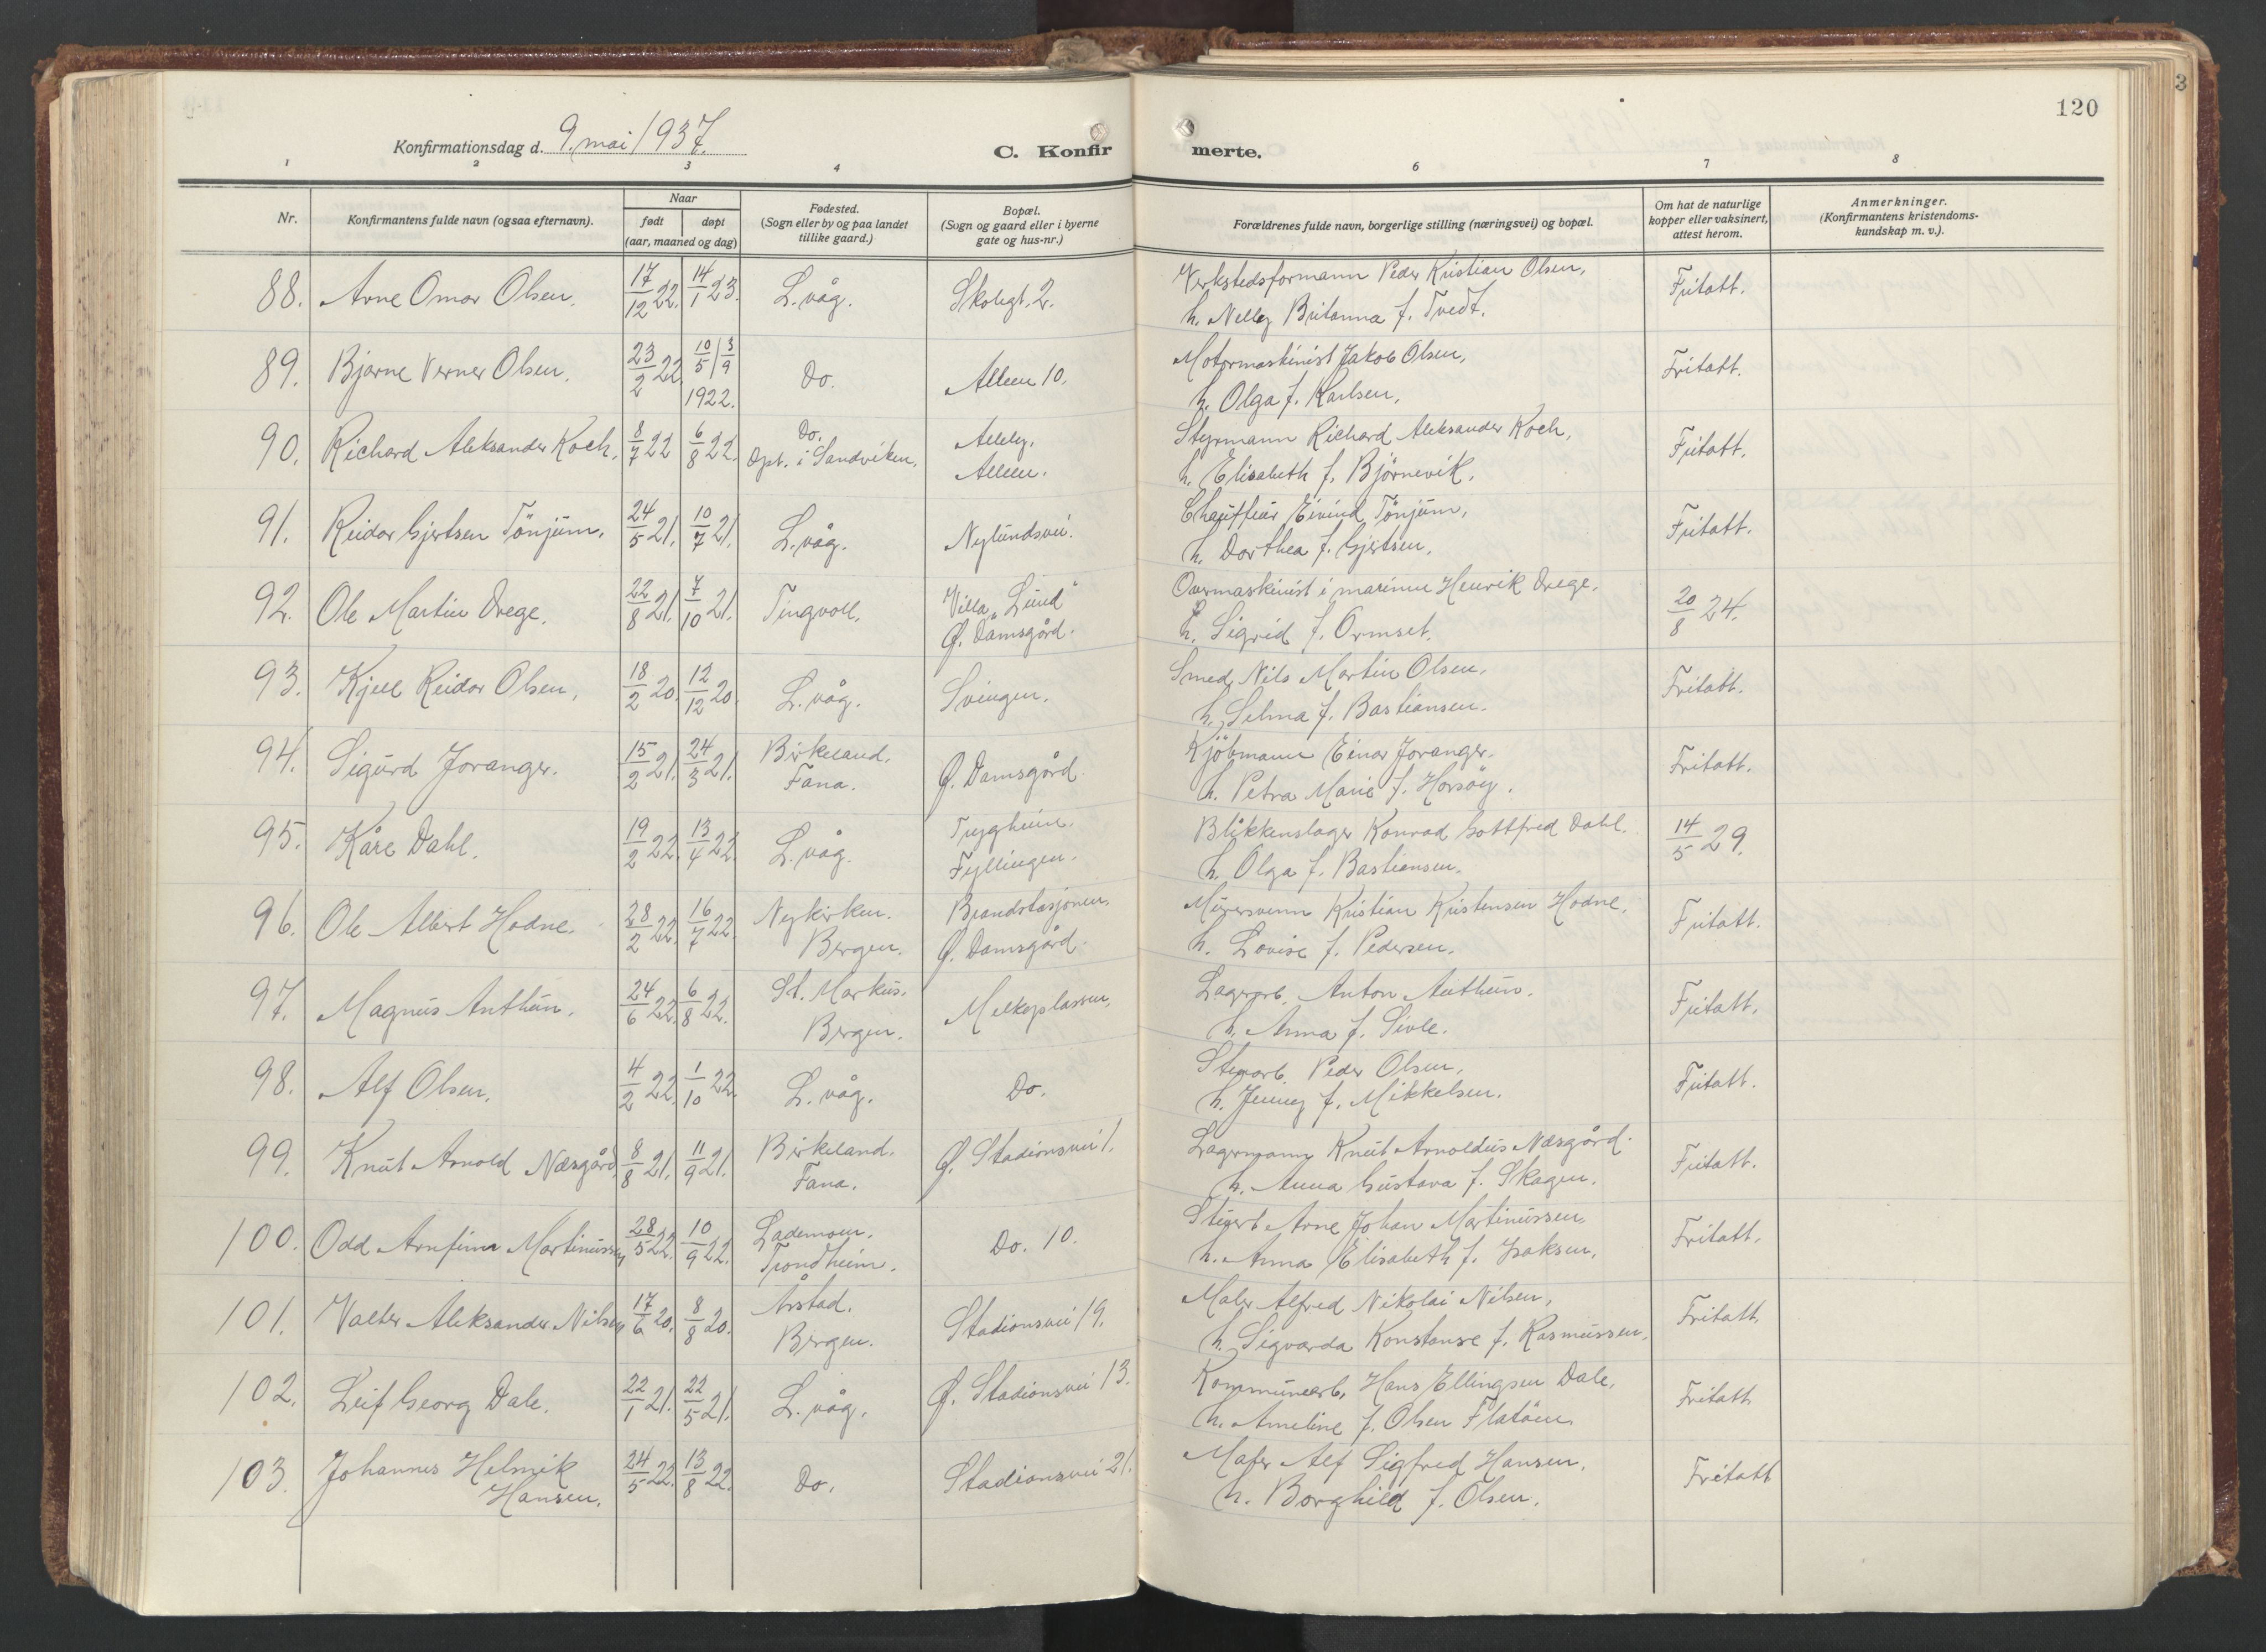 120
3
Konfirmationsdag d. 9. mai 1937.
C. Konfirmerte.
1 2 3 4 6 7 8
Nr.
Konfirmantens fulde navn (ogsaa efternavn).
Naar
født døpt
(aar, maaned og dag)
Fødested.
(Sogn eller by og paa landet
tillike gaard.)
Bopæl.
(Sogn og gaard eller i byerne
gate og hus-nr.)
Forældrenes fulde navn, borgerlige stilling (næringsvei) og bopæl.
Om hat de naturlige
kopper eller vaksinert,
attest herom.
Anmerkninger.
(Konfirmantens kristendoms-
kundskap m. v.).
88. Arne Omar Olsen. 17/12 22. 14/1 23. L.våg. Skolegt. 2. Verkstedsformann Peder Kristian Olsen,
h. Nelly Britanna f. Tvedt. Fritatt.
89. Bjarne Verner Olsen. 23/2 22. 10/5 | 3/9 1922. Do. Alleen 10. Motormaskinist Jakob Olsen,
h. Olga f. Karlsen. Fritatt.
90. Richard Aleksander Koch. 8/7 22 6/8 22. Do.
Dpt. i Sandviken. Alleby.
Alleen. Styrmann Richard Aleksander Koch,
h. Elisabeth f. Björnevik. Fritatt.
91. Reidar Gjertsen Tönjum. 24/5 21. 10/7 21. L.våg. Nylundsvei. Chauffeur Eivind Tönjum,
h. Dorthea f. Gjertsen. Fritatt.
92. Ole Martin Drege. 22/8 21. 7/10 21. Tingvoll. Villa "Lund"
Ø. Damsgård. Overmaskinist i marinen Henrik Drege.
h. Sigrid f. Ormset. 20/8 24.
93. Kjell Reidar Olsen. 18/2 20. 12/12 20. L.våg. Svingen. Smed Nils Martin Olsen,
h. Selma f. Bastiansen. Fritatt.
94. Sigurd Joranger. 15/2 21. 24/3 21. Birkeland.
Fana. Ø. Damsgård. Kjöbmann Einar Joranger.
h. Petra Marie f. Horsöy. Fritatt.
95. Kåre Dahl. 19/2 22. 13/4 22. L.våg. Trygheim.
Fyllingen. Blikkenslager Konrad Gottfred Dahl.
h. Olga f. Bastiansen. 14/5 29.
96. Ole Albert Hodne. 28/2 22. 16/7 22. Nykirken.
Bergen. Brandstasjonen.
Ø. Damsgård. Murersvenn Kristian Kristensen Hodne,
h. Lovise f. Pedersen. Fritatt.
97. Magnus Anthun. 24/6 22. 6/8 22. St. Markus.
Bergen. Melkeplassen. Lagerarb. Anton Anthun.
h. Anna f. Sivle. Fritatt.
98. Alf Olsen. 4/2 22. 1/10 22. L.våg. Do. Peder Olsen,
h. Jenny f. Mikkelsen. Fritatt.
99. Knut Arnold Næsgård. 8/8 21. 11/9 21. Birkeland.
Fana. Ø. Stadionsvei 1. Lagermann Knut Arnoldus Næsgård.
h. Anna Gustava f. Skagen. Fritatt.
100. Odd Arnfinn Martinussen 28/5 22. 10/9 22. Lademoen.
Trondheim. Do. 10. Arne Johan Martinussen
h. Anna Elisabeth f. Isaksen. Fritatt.
101. Valter Aleksander Nilsen 17/6 20. 8/8 20. Årstad.
Bergen. Stadionsvei 19. Maler Alfred Nikolai Nilsen,
h. Sigvarda Konstanse f. Rasmussen. Fritatt.
102. Leif Georg Dale. 22/1 21. 22/5 21. L.våg. Ø. Stadionsvei 13. Kommunearb. Hans Ellingsen Dale,
h. Ameline f. Olsen Flatöen. Fritatt
103. Johannes Helmik
Hansen. 24/5 22. 13/8 22. Do. Stadionsvei 21. Maler Alf Sigfred Hansen.
h. Borghild f. Olsen. Fritatt